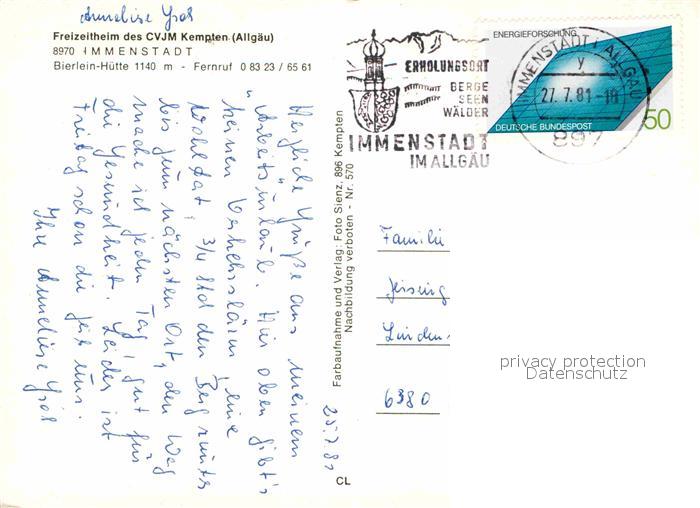 Anneliese
Freizeitheim des CVJM Kempten (Allgäu)
8970 IMMENSTADT
Bierlein-Hütte 1140 m - Fernruf 0 83 23 / 65 61
25.7.81
Herzliche Grüße aus meinem
"Arbeitsurlaub. Hier oben gibt's
keinen Verkehrslärm, eine
Wohltat, 3/4 Std den Berg runter
bis zum nächsten Ort, den Weg
mache ich jeden Tag, gut für
die Gesundheit. Leider ist
Freitag schon die Zeit um.
Ihre Anneliese
Farbaufnahme und Verlag: Foto Sienz, 896 Kempten
Nachbildung verboten - Nr. 570
CL
ERHOLUNGSORT
BERGE
SEEN
WÄLDER
IMMENSTADT
IM ALLGÄU
ENERGIEFORSCHUNG
DEUTSCHE BUNDESPOST
50
IMMENSTADT i. ALLGÄU
y
27.7.81-18
897
Familie
Linden-
6380
privacy protection
Datenschutz